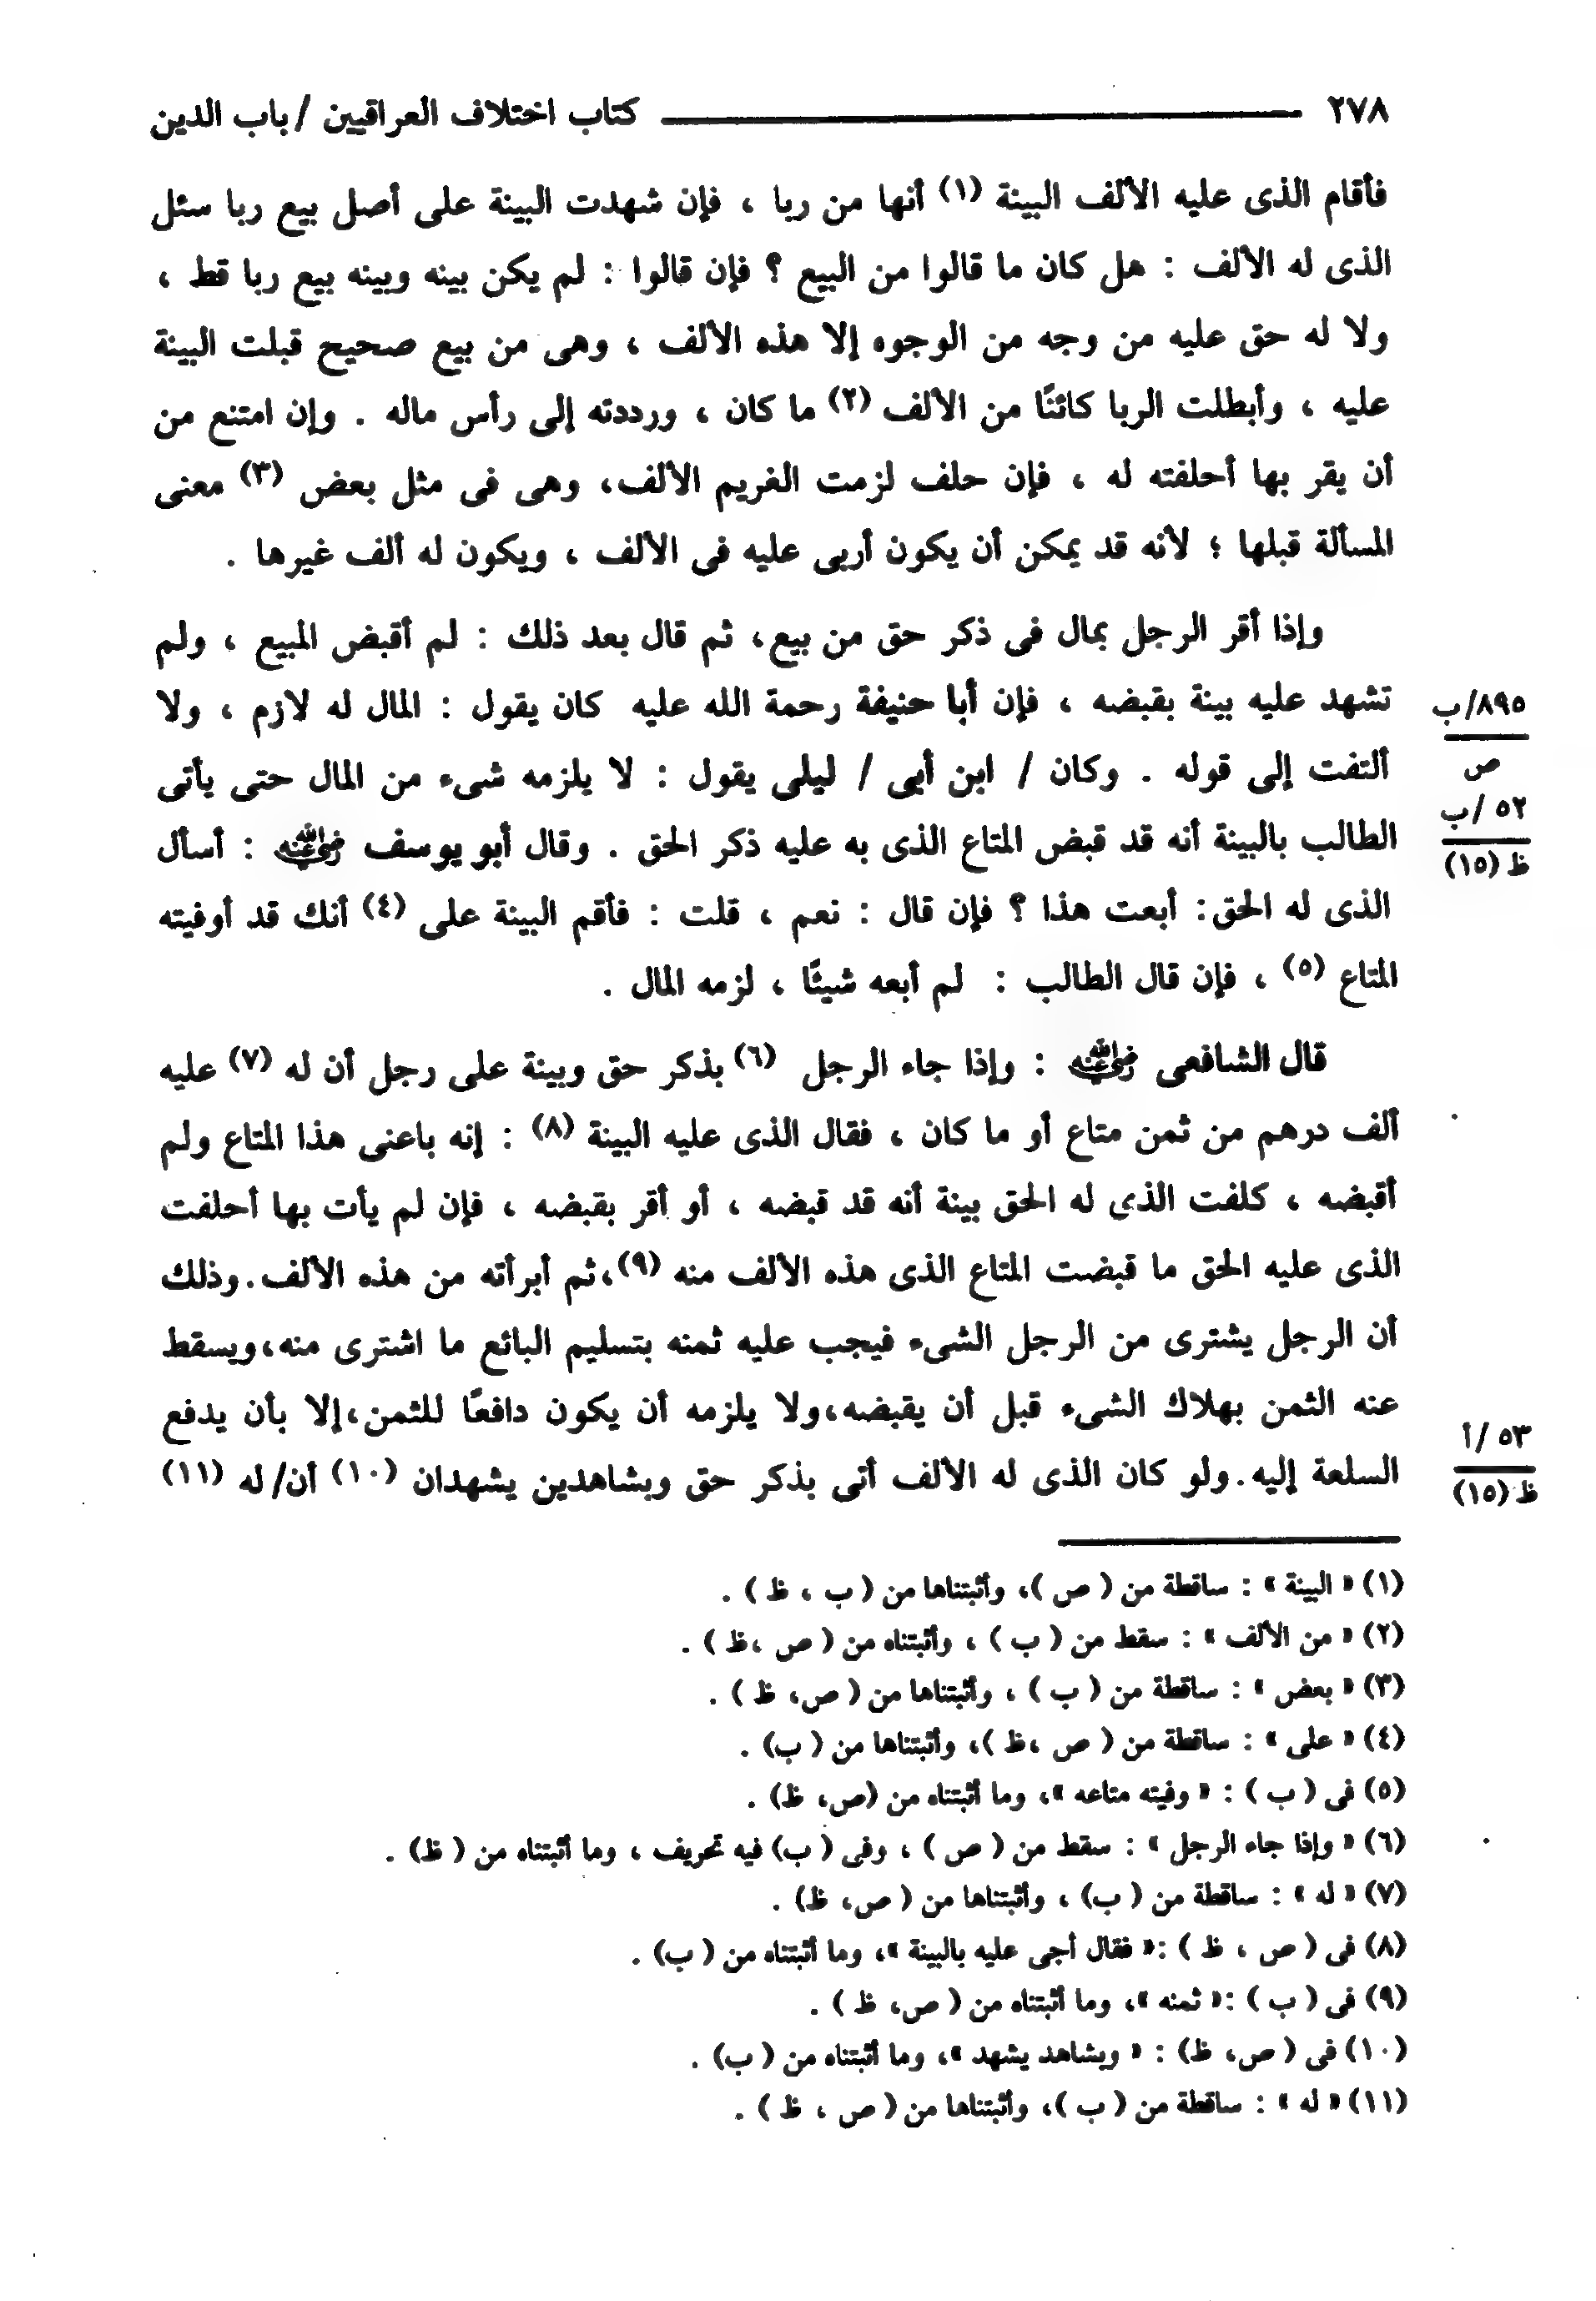 ٢٧٨ كتاب اختلاف العراقيين / باب الدين
فأقام الذى عليه الألف البينة (١) أنها من ربا ، فإن شهدت البينة على أصل بيع ربا سئل
الذى له الألف : هل كان ما قالوا من البيع ؟ فإن قالوا : لم يكن بينه وبينه بيع ربا قط ،
ولا له حق عليه من وجه من الوجوه إلا هذه الألف ، وهى من بيع صحيح قبلت البينة
عليه ، وأبطلت الربا كائنًا من الألف (٢) ما كان ، ورددته إلى رأس ماله . وإن امتنع من
أن يقر بها أحلفته له ، فإن حلف لزمت الغريم الألف، وهى فى مثل بعض (٣) معنى
المسألة قبلها ؛ لأنه قد يمكن أن يكون أربى عليه فى الألف ، ويكون له ألف غيرها .
وإذا أقر الرجل بمال فى ذكر حق من بيع، ثم قال بعد ذلك : لم أقبض المبيع ، ولم
تشهد عليه بينة بقبضه ، فإن أبا حنيفة رحمة الله عليه كان يقول : المال له لازم ، ولا
ألتفت إلى قوله . وكان / ابن أبى / ليلى يقول : لا يلزمه شىء من المال حتى يأتى
الطالب بالبينة أنه قد قبض المتاع الذى به عليه ذكر الحق . وقال أبو يوسف رضي الله عنه : أسأل
الذى له الحق: أبعت هذا ؟ فإن قال : نعم ، قلت : فأقم البينة على (٤) أنك قد أوفيته
المتاع (٥) ، فإن قال الطالب : لم أبعه شيئًا ، لزمه المال .
٨٩٥/ب
ص
٥٢ /ب
ظ (١٥)
قال الشافعى رضي الله عنه : وإذا جاء الرجل (٦) بذكر حق وبينة على رجل أن له (٧) عليه
ألف درهم من ثمن متاع أو ما كان ، فقال الذى عليه البينة (٨) : إنه باعنى هذا المتاع ولم
أقبضه ، كلفت الذى له الحق بينة أنه قد قبضه ، أو أقر بقبضه ، فإن لم يأت بها أحلفت
الذى عليه الحق ما قبضت المتاع الذى هذه الألف منه (٩)،ثم أبرأته من هذه الألف.وذلك
أن الرجل يشترى من الرجل الشىء فيجب عليه ثمنه بتسليم البائع ما اشترى منه،ويسقط
عنه الثمن بهلاك الشىء قبل أن يقبضه،ولا يلزمه أن يكون دافعًا للثمن،إلا بأن يدفع
السلعة إليه.ولو كان الذى له الألف أتى بذكر حق وبشاهدين يشهدان (١٠) أن/ له (١١)
٥٣ /أ
ظ (١٥)
(١) « البينة » : ساقطة من ( ص )، وأثبتناها من ( ب ، ظ ) .
(٢) « من الألف » : سقط من ( ب ) ، وأثبتناه من ( ص ،ظ ) .
(٣) « بعض » : ساقطة من ( ب ) ، وأثبتناها من ( ص، ظ ) .
(٤) « على » : ساقطة من ( ص ،ظ )، وأثبتناها من ( ب) .
(٥) فى ( ب ) : « وفيته متاعه »، وما أثبتناه من (ص، ظ) .
(٦) « وإذا جاء الرجل » : سقط من ( ص ) ، وفى ( ب) فيه تحريف ، وما أثبتناه من ( ظ) .
(٧) « له » : ساقطة من ( ب) ، وأثبتناها من ( ص، ظ) .
(٨) فى ( ص ، ظ ) :« فقال أجى عليه بالبينة »، وما أثبتناه من ( ب) .
(٩) فى ( ب ) :« ثمنه »، وما أثبتناه من ( ص، ظ ) .
(١٠) فى ( ص، ظ) : « وبشاهد يشهد »، وما أثبتناه من ( ب) .
(١١) « له » : ساقطة من ( ب )، وأثبتناها من ( ص ، ظ ) .